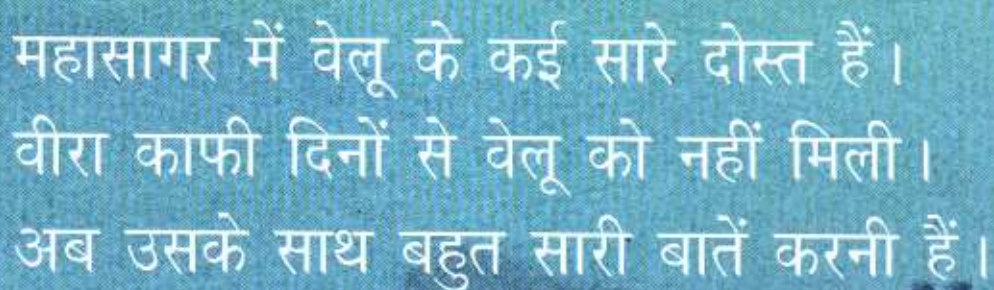 महासागर में वेलू के कई सारे दोस्त हैं।
वीरा काफी दिनों से वेलू को नहीं मिली।
अब उसके साथ बहुत सारी बातें करनी हैं।